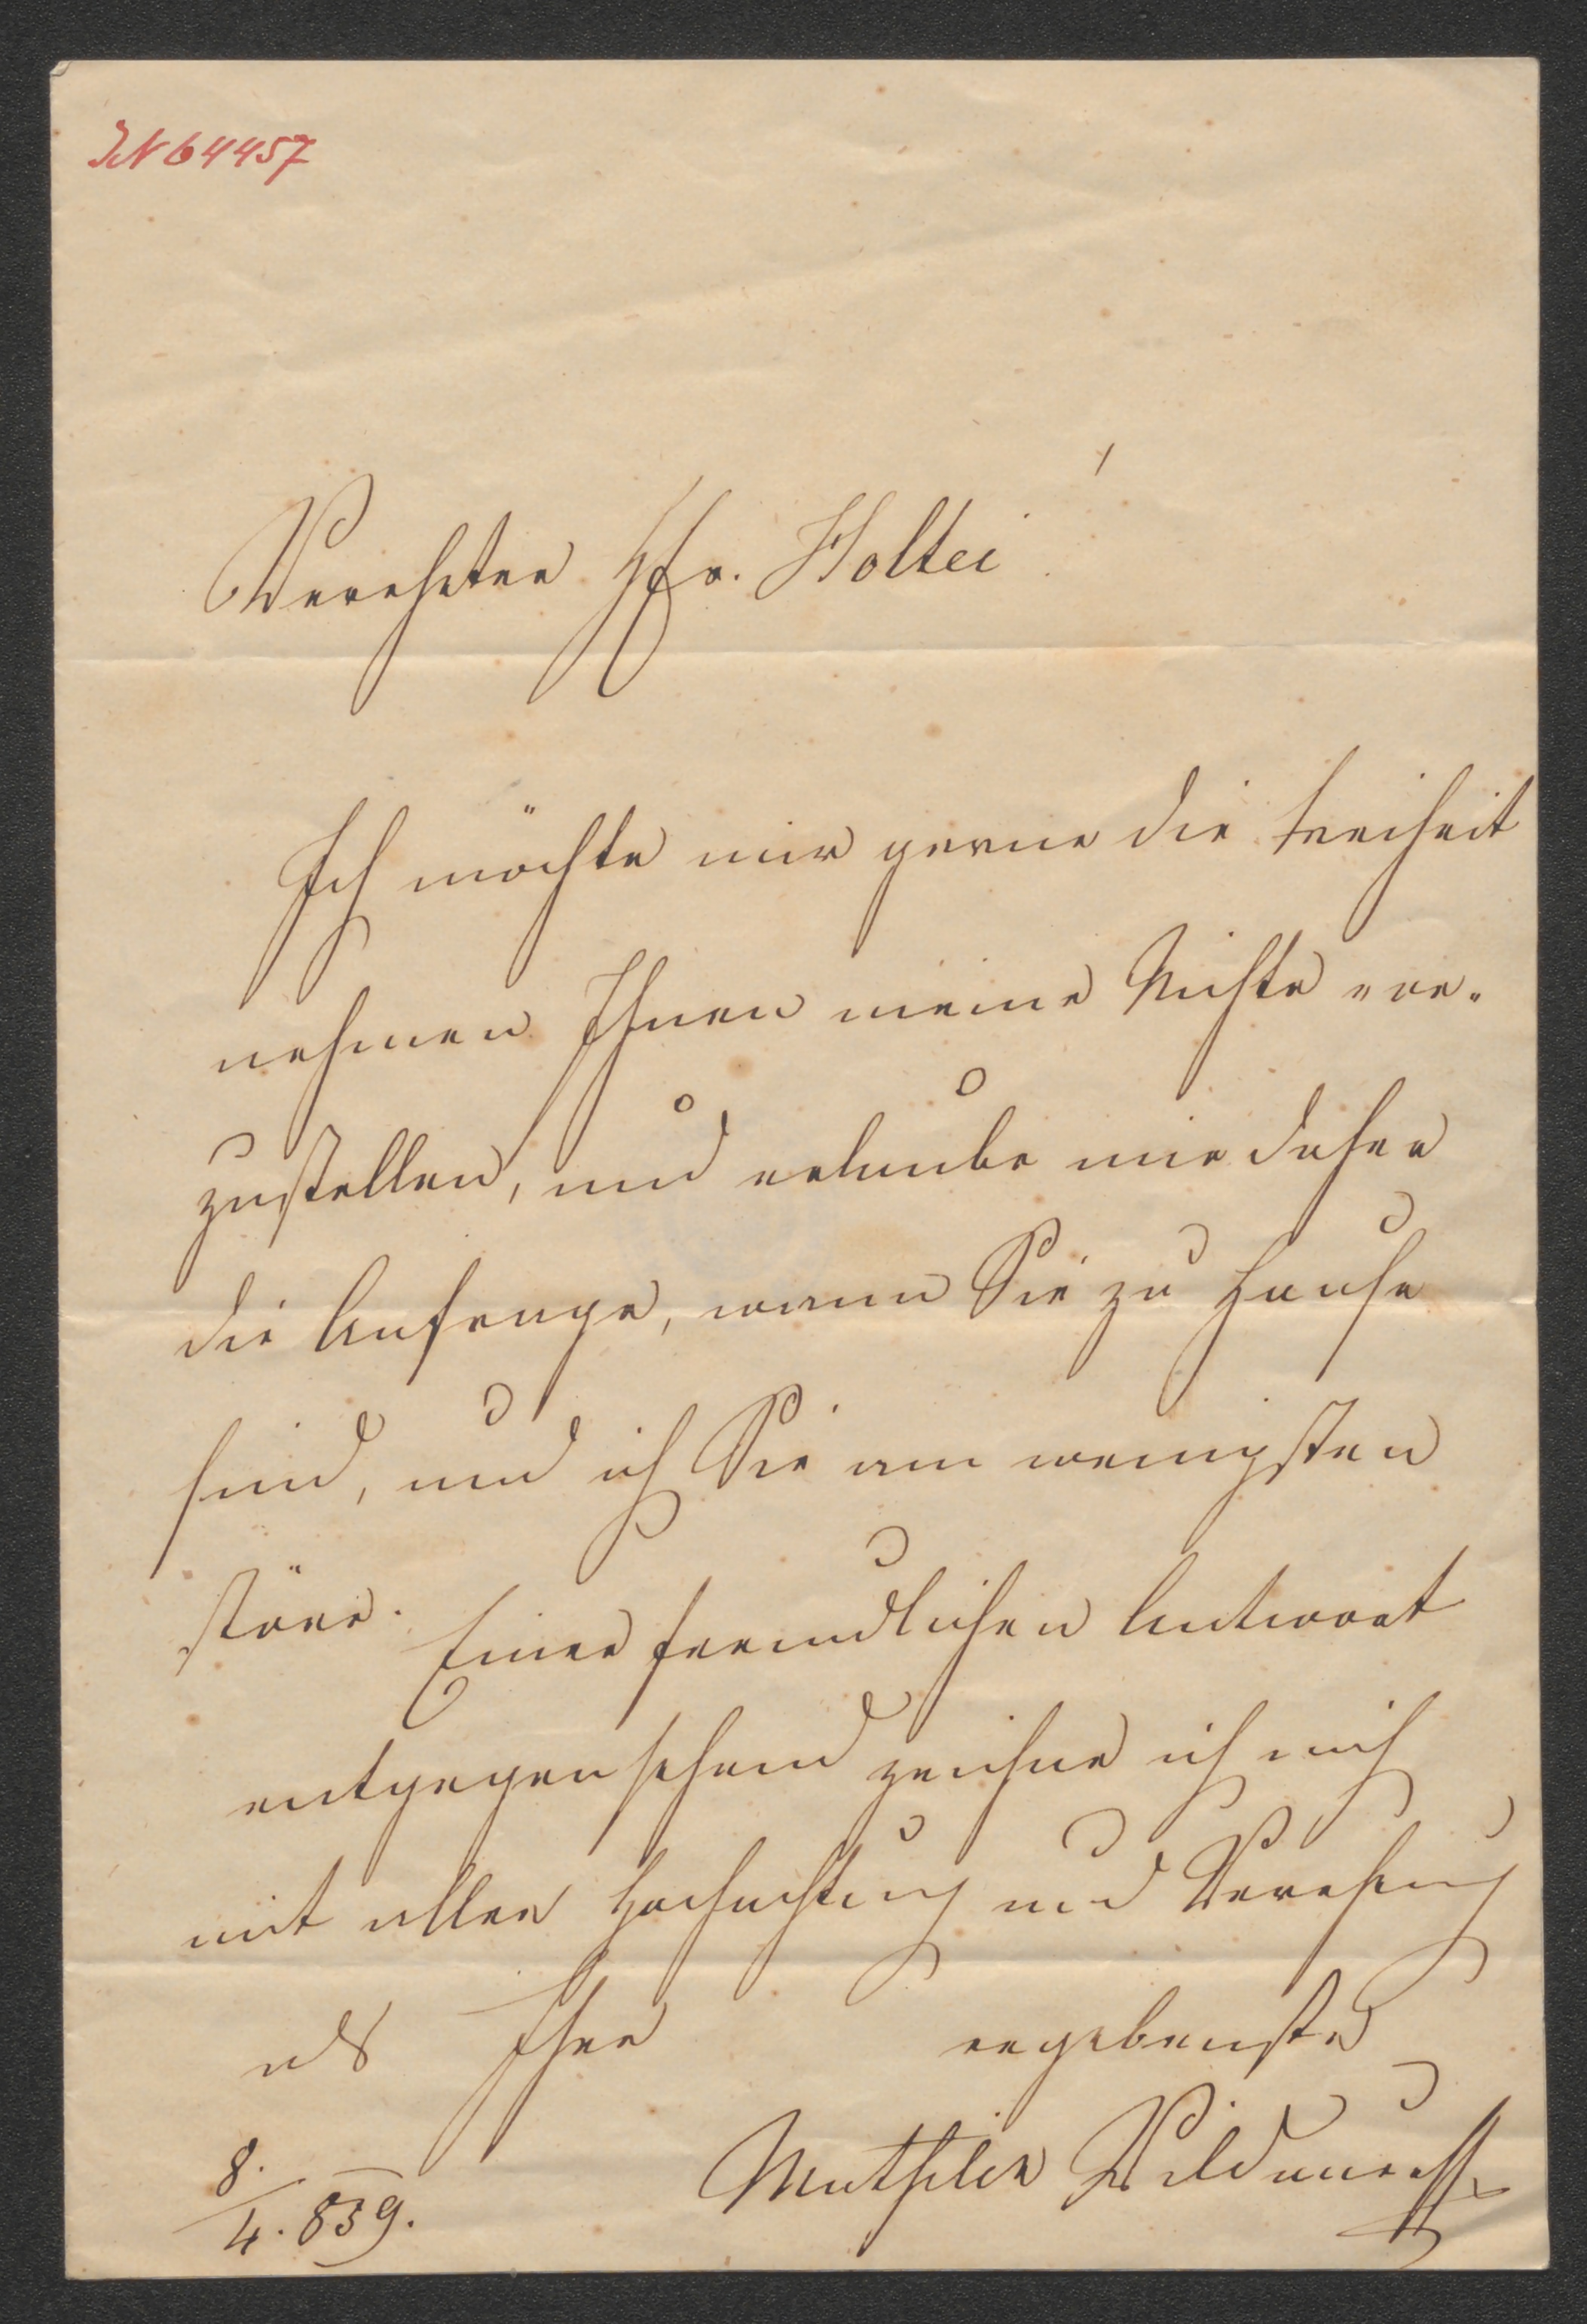 IN 64457
Verehrter Hr. Holtei!
Ich möchte mir gerne die Freiheit
nehmen Ihnen meine Nichte vor-
zustellen, und erlaube mir daher
die Anfrage, wann Sie zu Hause
sind, und ich Sie am wenigsten
störe. Einer freundlichen Antwort
entgegensehend zeichne ich mich
mit aller Hochachtung und Verehrung
als Ihre ergebenste
Mathilde
8.
4. 859.